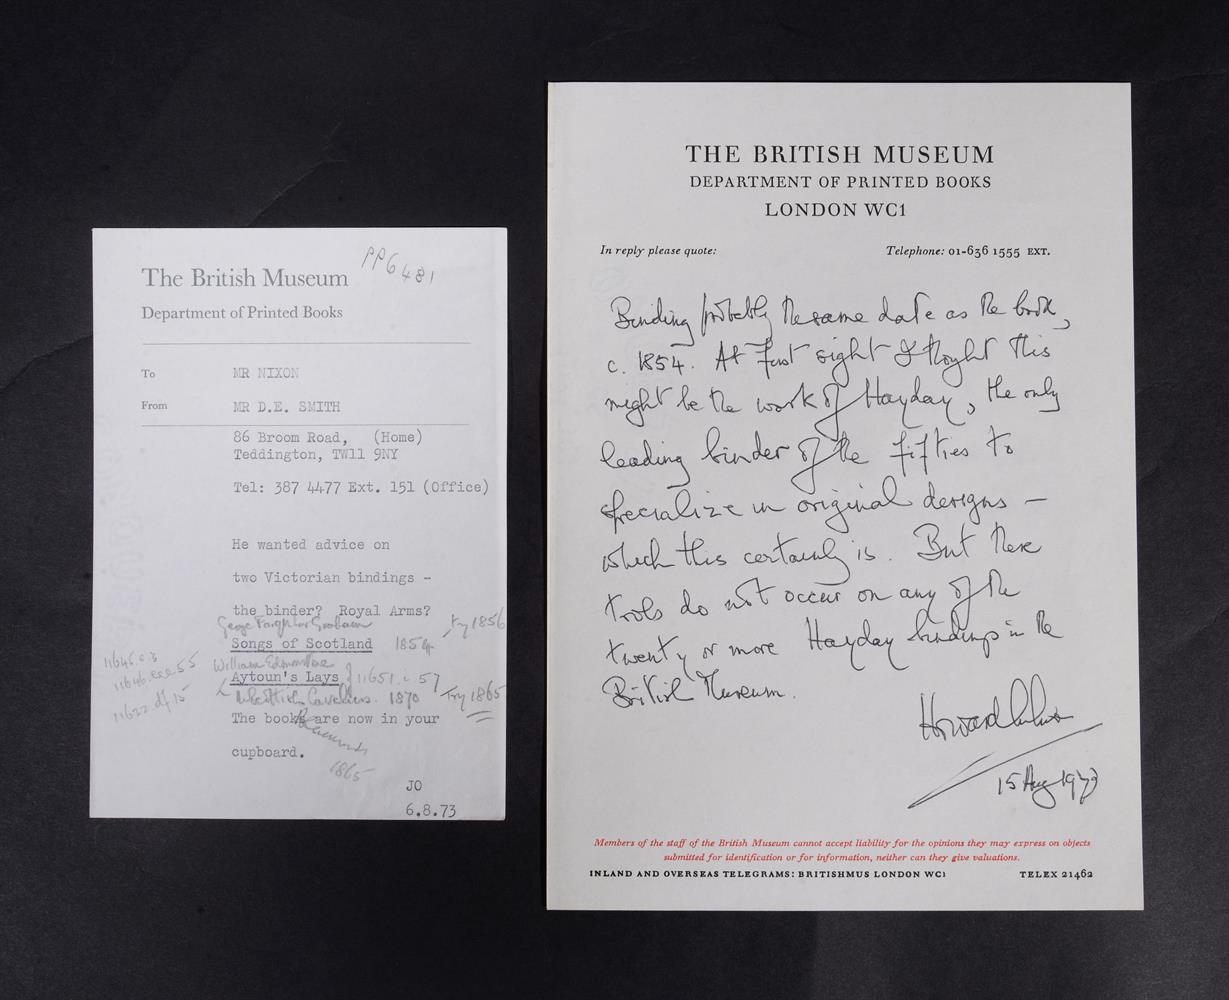 The British Museum
PP6481
Department of Printed Books
To MR NIXON
From MR D.E. SMITH
86 Broom Road, (Home)
Teddington, TW11 9NY
Tel: 387 4477 Ext. 151 (Office)
He wanted advice on
two Victorian bindings -
the binder? Royal Arms?
George Farquhar Graham try 1856
Songs of Scotland 1854
11646.e.3 William Edmonstone
11646.eee.55 Aytoun's Lays of 11651.c.57
11622.df.15 Scottish Cavaliers. 1870 Try 1865
The books are now in your
cupboard.
1865
JO
6.8.73
THE BRITISH MUSEUM
DEPARTMENT OF PRINTED BOOKS
LONDON WC1
In reply please quote: Telephone: 01-636 1555 EXT.
Binding probably the same date as the book,
c. 1854. At first sight I thought this
might be the work of Hayday, the only
leading binder of the fifties to
specialize in original designs –
which this certainly is. But these
tools do not occur on any of the
twenty or more Hayday bindings in the
British Museum.
Howard Nixon
15 Aug 1973
Members of the staff of the British Museum cannot accept liability for the opinions they may express on objects
submitted for identification or for information, neither can they give valuations.
INLAND AND OVERSEAS TELEGRAMS: BRITISHMUS LONDON WC1 TELEX 21462